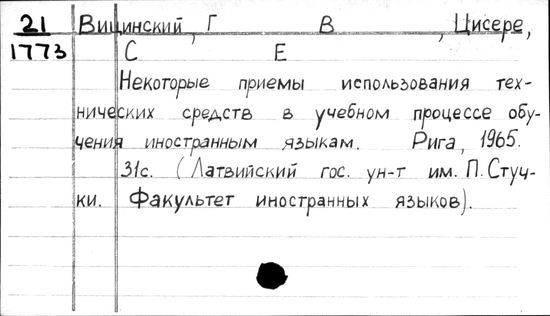 21 Вицинский, Г В , Цисере,
1773 С Е
Некоторые приемы использования тех-
нических средств в учебном процессе обу-
чения иностранным языкам. Рига, 1965.
31с. (Латвийский гос. ун-т им. П. Стуч-
ки. Факультет иностранных языков).